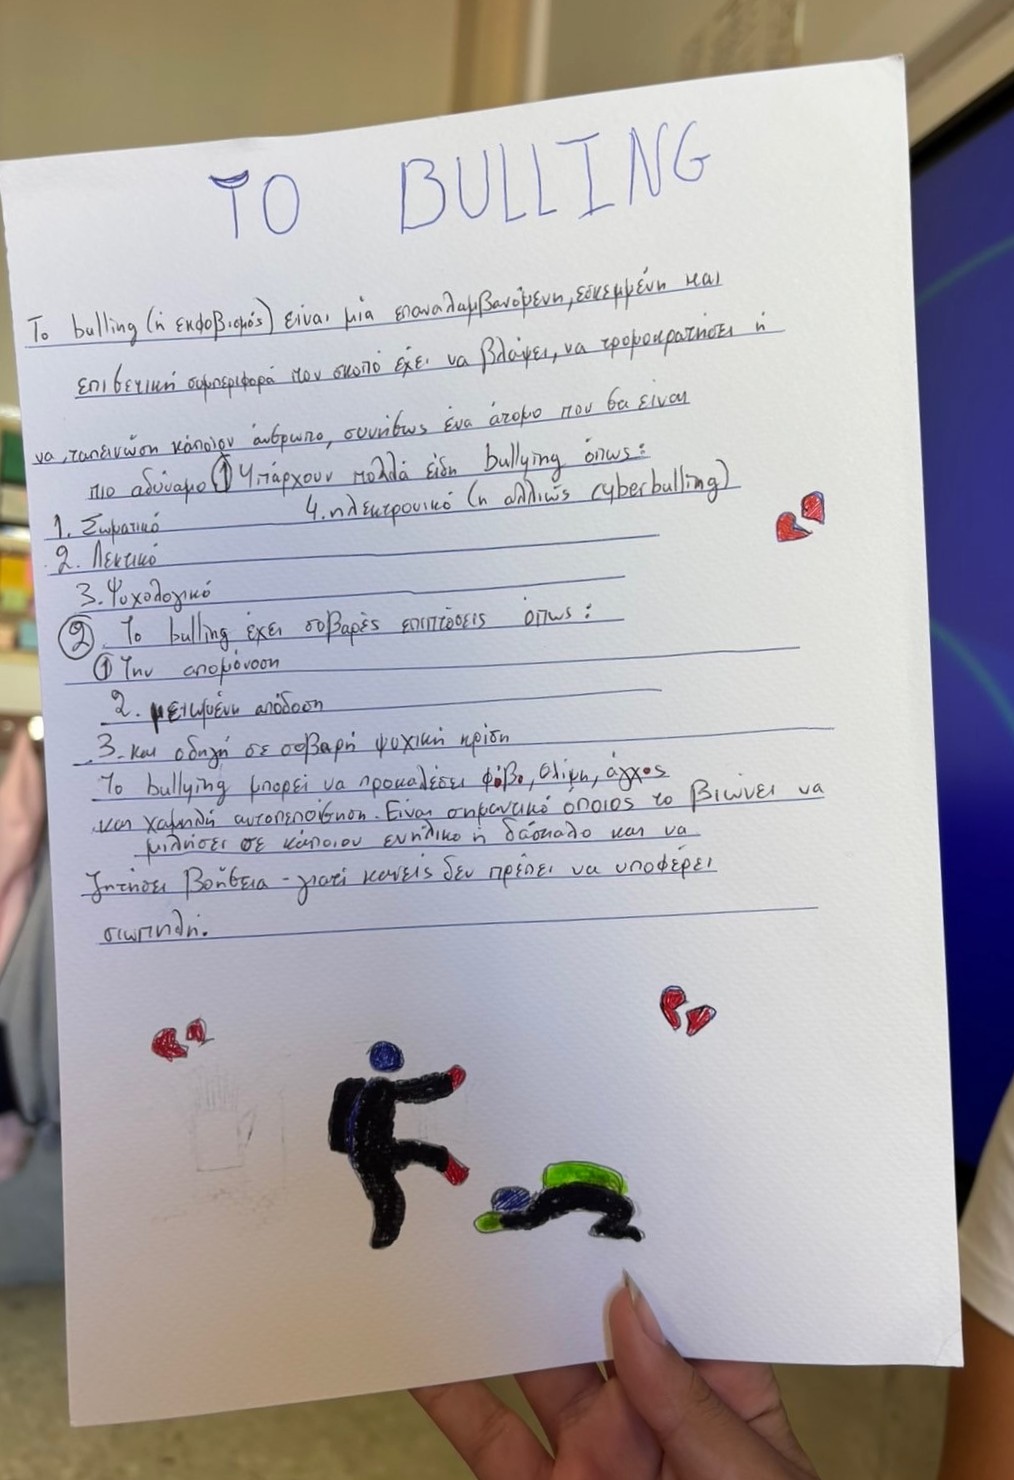 ΤΟ BULLING
Το bulling (ή εκφοβισμός) είναι μία επαναλαμβανόμενη, εσκεμμένη και
επιθετική συμπεριφορά που σκοπό έχει να βλάψει, να τρομοκρατήσει ή
να ταπεινώση κάποιον άνθρωπο, συνήθως ένα άτομο που θα είναι
πιο αδύναμο ① Υπάρχουν πολλά είδη bullying όπως:
1. Σωματικό 4. ηλεκτρονικό (η αλλιώς cyberbulling)
2. Λεκτικό
3. Ψυχολογικό
② Το bulling έχει σοβαρές επιπτόσεις όπως:
① Την απομόνοση
2. μειωμένη απόδοση
3. και οδηγή σε σοβαρή ψυχική κρίση
Το bullying μπορεί να προκαλέσει φόβο, θλίψη, άγχος
και χαμηλή αυτοπεποίθηση. Είναι σημαντικό όποιος το βιώνει να
μιλήσει σε κάποιον ενήλικο ή δάσκαλο και να
ζητήσει βοήθεια - γιατί κανείς δεν πρέπει να υποφέρει
σιωπηλή.